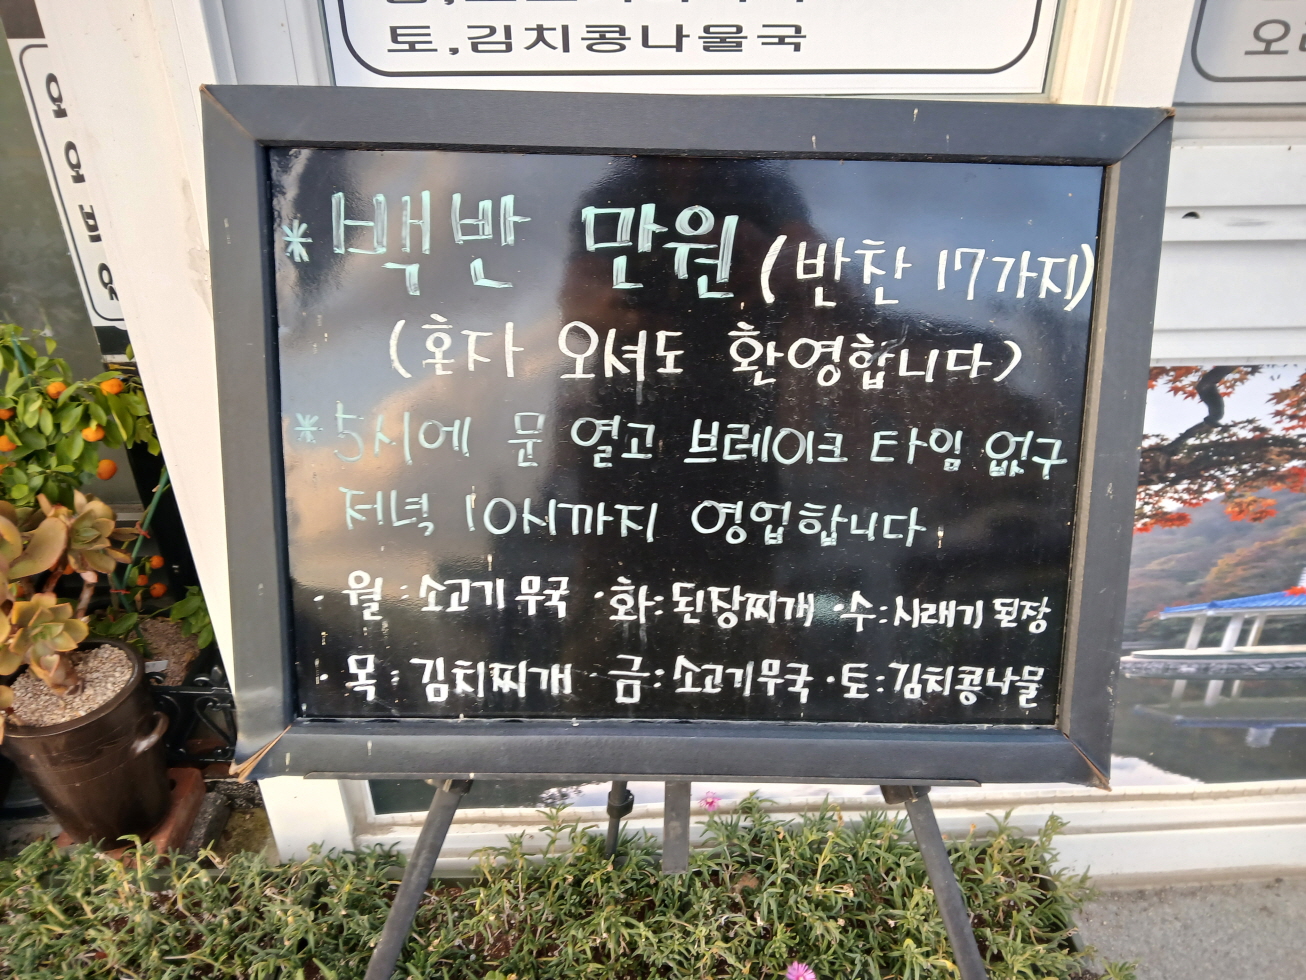 토,김치콩나물국
*백반 만원 (반찬 17가지)
(혼자 오셔도 환영합니다)
*5시에 문 열고 브레이크 타임 없구
저녁 10시까지 영업합니다
· 월 : 소고기무국 · 화: 된장찌개 · 수: 시래기 된장
· 목 : 김치찌개 · 금: 소고기무국 · 토: 김치콩나물